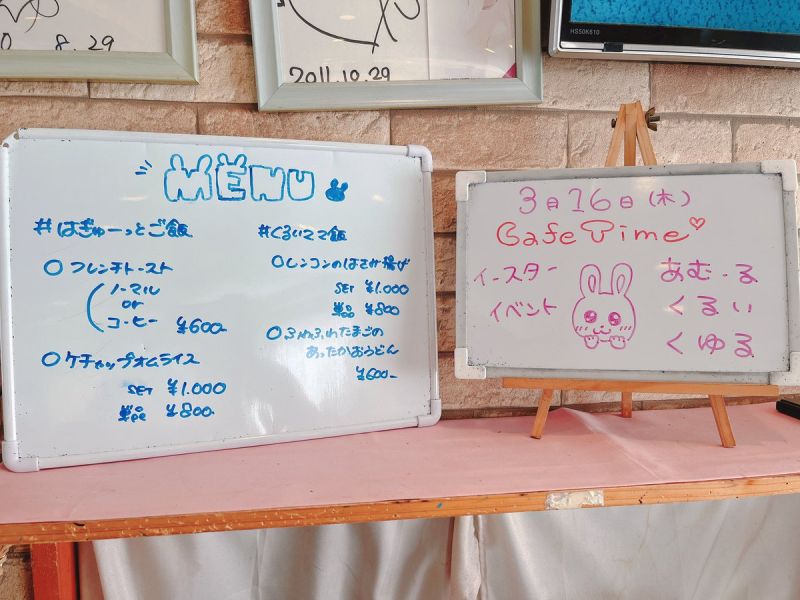 8.29
2011.10.29
HS50K610
MENU
#はぎゅーっとご飯
○フレンチトースト
ノーマル
or
コーヒー ¥600-
○ケチャップオムライス
SET ¥1.000
単品 ¥800-
#くるいママ飯
○レンコンのはさみ揚げ
SET ¥1.000
単品 ¥800
○ふわふわたまごの
あったかおうどん
¥600-
3月16日(木)
Cafe Time♡
イースター
イベント
あむーる
くるい
くゆる